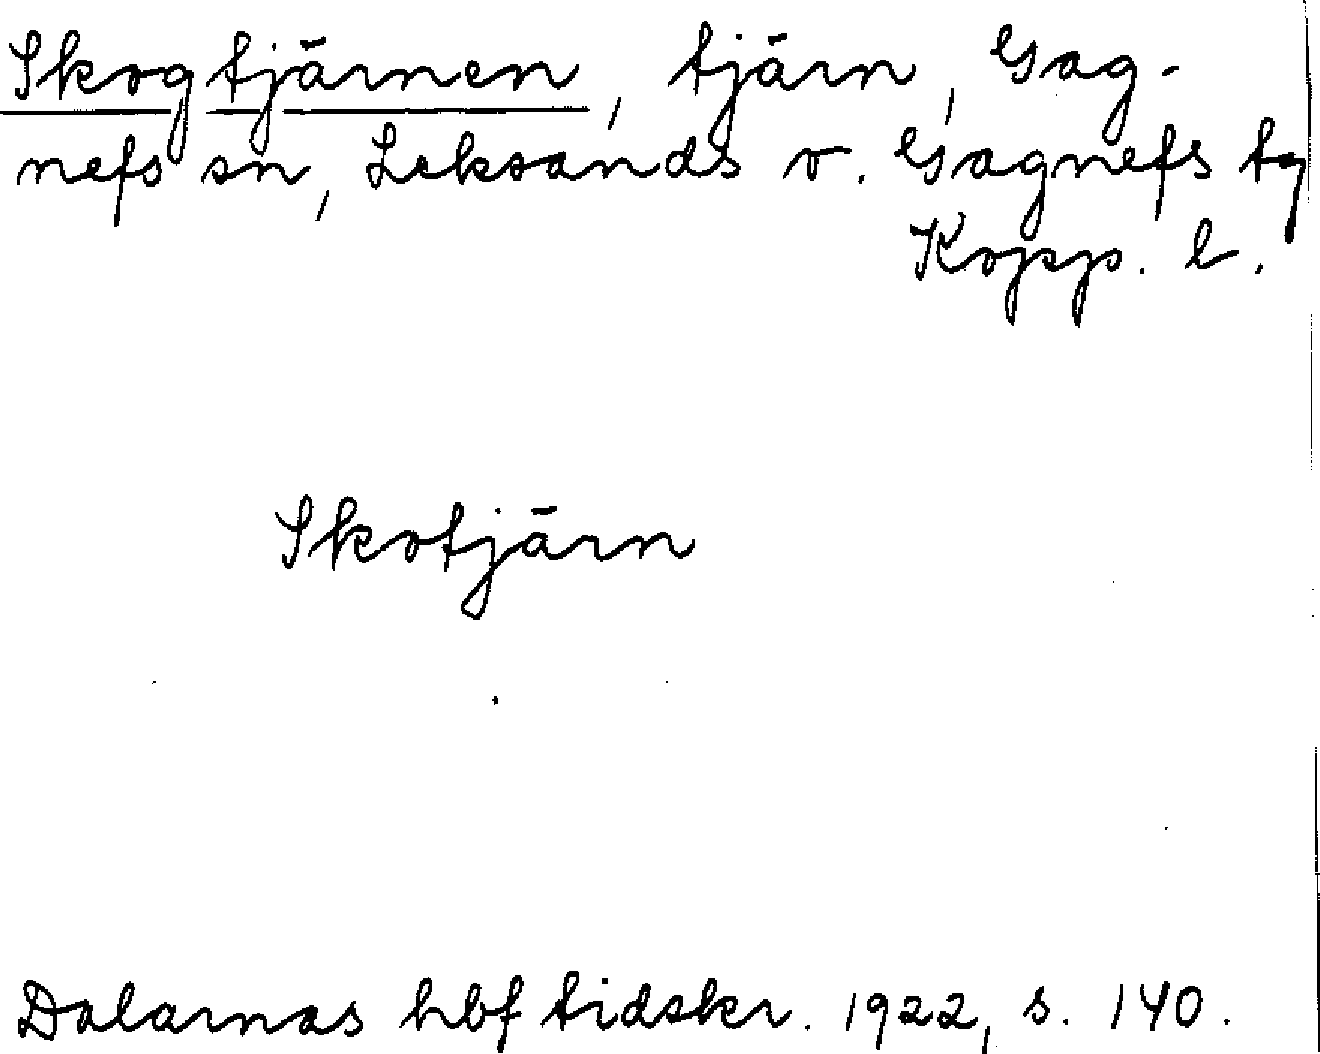 Skogtjärnen, tjärn, Gag-
nefs sn, Leksands o. Gagnefs tg
Kopp. l.
Skotjärn
Dalarnas hbf tidskr. 1922, s. 140.